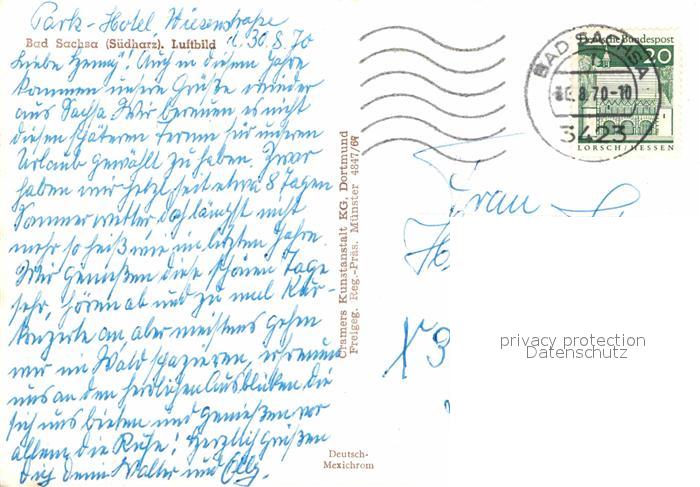 Park-Hotel Wiesenstraße
Bad Sachsa (Südharz). Luftbild
d. 30.8.70
Auch in diesem Jahre
kommen unsere Grüße wieder
aus Sachsa. Wir bereuen es nicht
diesen späteren Termin für unseren
Urlaub gewählt zu haben. Zwar
haben wir jetzt seit etwa 8 Tagen
Sommerwetter doch längst nicht
mehr so heiß wie im letzten Jahre.
Wir genießen diese schönen Tage
sehr, hören ab und zu mal Kur-
konzerte an aber meistens gehen
wir im Wald spazieren, erfreuen
uns an den herrlichen Ausblicken die
sich uns bieten und genießen vor
allem die Ruhe! Herzlich grüßen
Dich Deine Walter und Elly.
Cramers Kunstanstalt KG, Dortmund
Freigeg. Reg.-Präs. Münster 4847/67
Deutsch-
Mexichrom
Deutsche Bundespost
20
LORSCH/HESSEN
BAD SACHSA
30.8.70-10
3423
Frau
privacy protection
Datenschutz